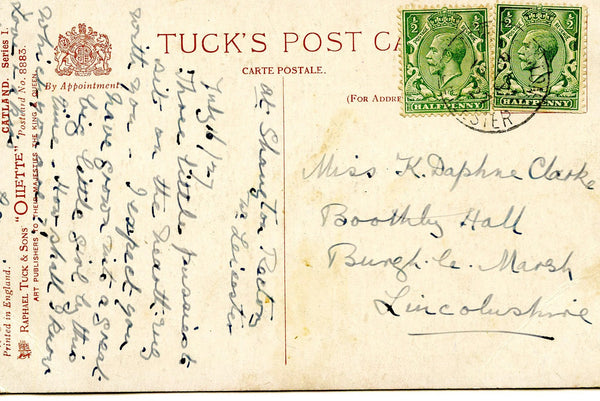 TUCK'S POST CA
CARTE POSTALE.
(FOR ADDRE
By Appointment
CATLAND. Series I.
"OILETTE" Postcard No. 8883.
RAPHAEL TUCK & SONS
ART PUBLISHERS TO THEIR MAJESTIES THE KING & QUEEN.
Printed in England.
½ ½
HALFPENNY
½ ½
HALFPENNY
ESTER
at Shangton Rectory
Leicester
July 16/27
These little pussies to
sit on the hearthrug
with you - I expect you
have grown into a great
big little girl by this
time - How shall I know
Miss K. Daphne Clarke
Boothby Hall
Burgh le Marsh
Lincolnshire